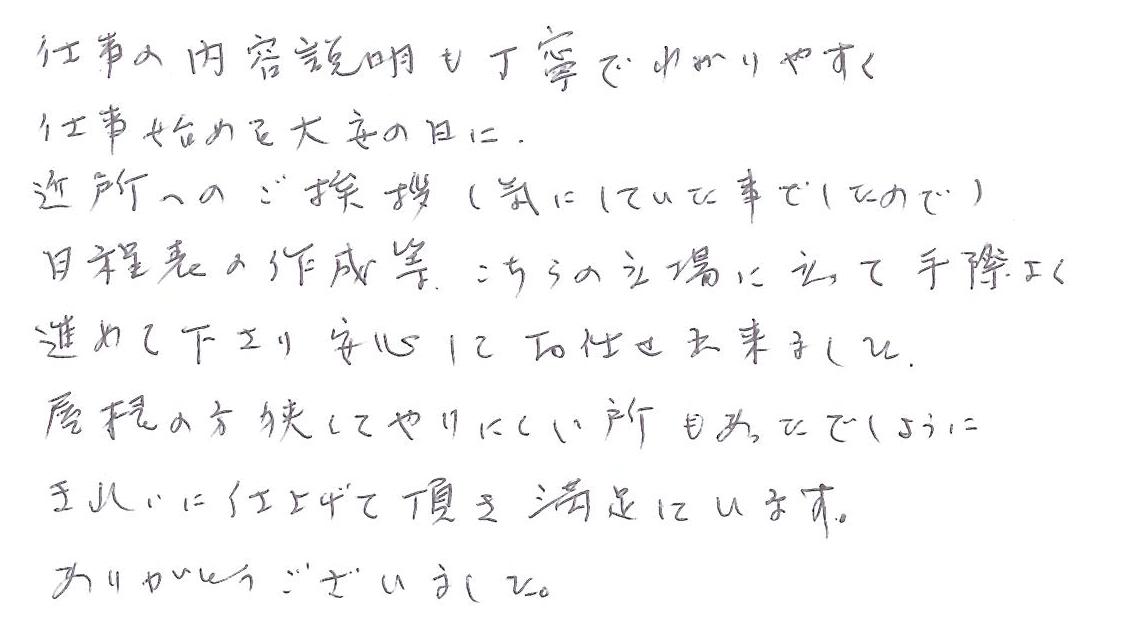 仕事の内容説明も丁寧でわかりやすく
仕事始めを大安の日に.
近所へのご挨拶(気にしていた事でしたので)
日程表の作成等.こちらの立場に立って手際よく
進めて下さり安心してお任せ出来ました.
屋根の方狭くてやりにくい所もあったでしょうに
きれいに仕上げて頂き満足しています。
ありがとうございました。